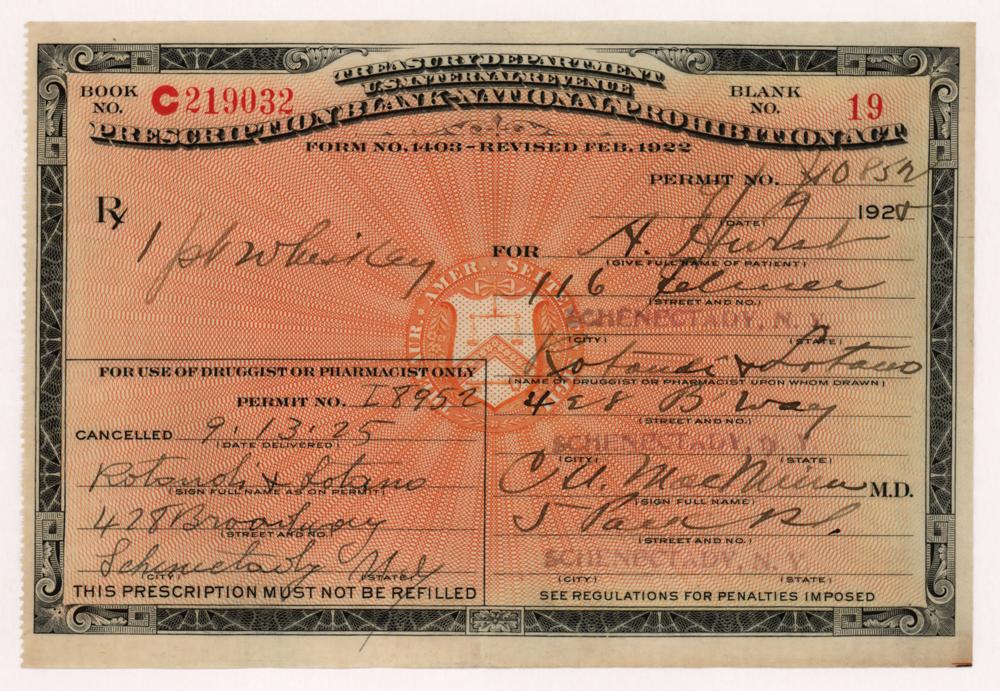 TREASURY DEPARTMENT
U.S. INTERNAL REVENUE
PRESCRIPTION BLANK-NATIONAL PROHIBITION ACT
BOOK NO. C219032
BLANK NO. 19
FORM NO. 1403 - REVISED FEB. 1922
PERMIT NO.
192
(DATE)
℞
1 pt whiskey
FOR A. Hurst
(GIVE FULL NAME OF PATIENT)
116
(STREET AND NO.)
SCHENECTADY, N.Y.
(CITY) (STATE)
Rotundi & Lotano
(NAME OF DRUGGIST OR PHARMACIST UPON WHOM DRAWN)
428 B'way
(STREET AND NO.)
SCHENECTADY, N.Y.
(CITY) (STATE)
C. A. M.D.
(SIGN FULL NAME)
5
(STREET AND NO.)
SCHENECTADY, N.Y.
(CITY) (STATE)
SEE REGULATIONS FOR PENALTIES IMPOSED
FOR USE OF DRUGGIST OR PHARMACIST ONLY
PERMIT NO. I8952
CANCELLED 9.13.25
(DATE DELIVERED)
Rotundi & Lotano
(SIGN FULL NAME AS ON PERMIT)
428 Broadway
(STREET AND NO.)
Schenectady N.Y
(CITY) (STATE)
THIS PRESCRIPTION MUST NOT BE REFILLED